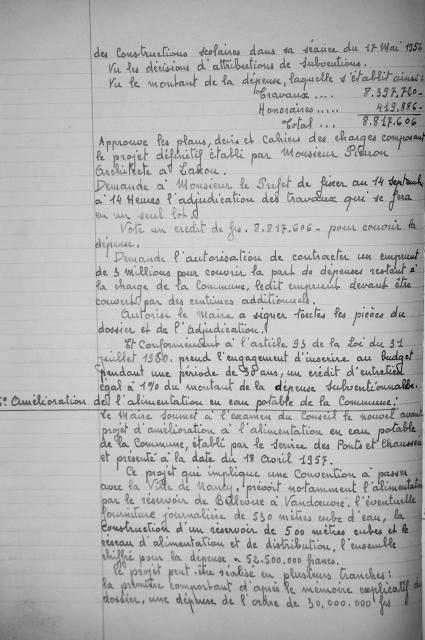 des Constructions scolaires dans sa séance du 17 Mai 1956
Vu les décisions d'attributions de subventions.
Vu le montant de la dépense, laquelle s'établit ainsi:
Travaux .... 8.397.720-
Honoraires ..... 419.886-
Total ... 8.817.606
Approuve les plans, devis et Cahiers des charges composant
le projet définitif établi par Monsieur
Architecte à
Demande à Monsieur le Préfet de fixer au 14 septemb
à 14 Heures l'adjudication des travaux qui se fera
en un seul lot.
Vote un crédit de frs. 8.817.606- pour couvrir la
dépense.
Demande l'autorisation de contracter un emprunt
de 3 Millions pour couvrir la part de dépenses restant à
la charge de la Commune, ledit emprunt devant être
couvert par des centimes additionnels.
Autorise le Maire à signer toutes les pièces du
dossier et de l'Adjudication.
Et Conformément à l'article 93 de la Loi du 31
juillet 1920, prend l'engagement d'inscrire au budget
pendant une période de 30 ans, un crédit d'entretien
égal à 1% du montant de la dépense subventionnable.
5° Amélioration de l'alimentation en eau potable de la Commune:
Le Maire soumet à l'examen du Conseil le nouvel avant
projet d'amélioration à l'alimentation en eau potable
de la Commune, établi par le Service des Ponts et Chaussées
et présenté à la date du 18 Avril 1957.
Ce projet qui implique une Convention à passer
avec la Ville de Nancy, prévoit notamment l'alimentation
par le réservoir de Bellevue à Vandoeuvre, l'éventuelle
fourniture journalière de 530 mètres cube d'eau, la
Construction d'un réservoir de 500 mètres cubes et le
réseau d'alimentation et de distribution, l'ensemble
chiffré pour la dépense à 52.500.000 francs.
Ce projet peut être réalisé en plusieurs tranches:
la première comportant d'après le mémoire explicatif du
dossier, une dépense de l'ordre de 30.000.000 frs